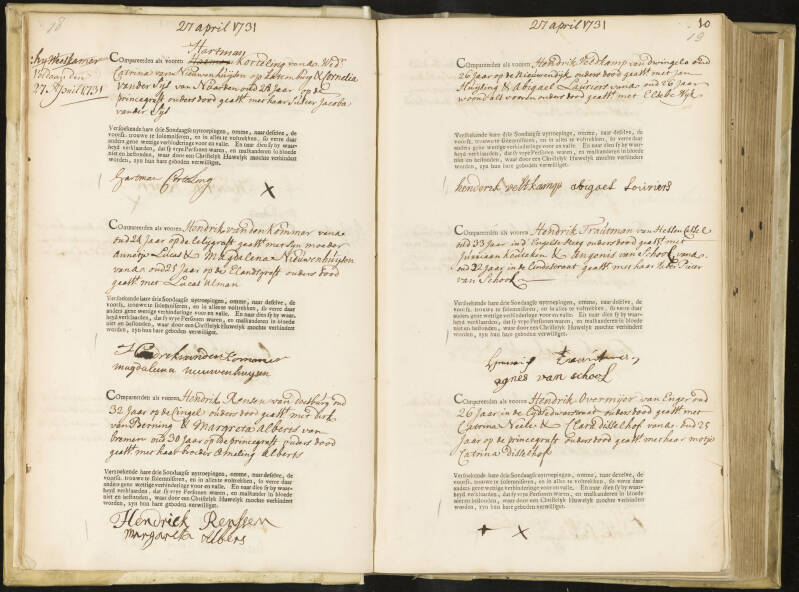 18
27 april 1731
Hartman
Compareerden als vooren Korteling van a Wedr
Catrina van Nieuwenhuijsen op &Cornelia
vander Syl van Naarden oud 28 Jaar op de
princegraft ouders dood geastt met haar suster Jacoba
vander Syl
27 April 1731
Versoekende hare drie Sondaagse uytroepingen, omme, naar deselve, de
voorsz. trouwe te solemniseren, en in alles te voltrekken, so verre daar
anders gene wettige verhinderinge voor en valle. En naar dien sy by waar-
heyd verklaarden, dat sy vrye Persoonen waren, en malkanderen in bloede
niet en bestonden, waar door een Christelyk Huwelyk mochte verhindert
worden, zyn hun hare geboden verwilliget.
Hartman Corteling
X
Compareerden als vooren Hendrik van den Kommer van a
oud 24 Jaar op de Lelygraft geastt met syn moeder
Annetje Lucas & Magdalena Nieuwenhuijsen
van a oud 25 Jaar op de Elandsgraft ouders dood
geastt met Lucas Ulman
Versoekende hare drie Sondaagse uytroepingen, omme, naar deselve, de
voorsz. trouwe te solemniseren, en in alles te voltrekken, so verre daar
anders gene wettige verhinderinge voor en valle. En naar dien sy by waar-
heyd verklaarden, dat sy vrye Persoonen waren, en malkanderen in bloede
niet en bestonden, waar door een Christelyk Huwelyk mochte verhindert
worden, zyn hun hare geboden verwilliget.
magdaleena nieuwenhuysen
Compareerden als vooren Hendrik Rensen van Doesburg oud
32 Jaar op de Cingel ouders dood geastt met Dirk
van & Margreta Alberts van
Bremen oud 30 Jaar op de princegraft ouders dood
geastt met haar broeder Alberts
Versoekende hare drie Sondaagse uytroepingen, omme, naar deselve, de
voorsz. trouwe te solemniseren, en in alles te voltrekken, so verre daar
anders gene wettige verhinderinge voor en valle. En naar dien sy by waar-
heyd verklaarden, dat sy vrye Persoonen waren, en malkanderen in bloede
niet en bestonden, waar door een Christelyk Huwelyk mochte verhindert
worden, zyn hun hare geboden verwilliget.
Hendrick Renssen
margareta Albers
27 april 1731
10
19
Compareerden als vooren Hendrik Veldkamp van Dwingela oud
26 Jaar op de Nieuwendijk ouders dood geastt met Jan
Huijsing & Abigael Lauriers van a oud 26 Jaar
woond als vooren ouders dood geastt met Elsebe Wyk
Versoekende hare drie Sondaagse uytroepingen, omme, naar deselve, de
voorsz. trouwe te solemniseren, en in alles te voltrekken, so verre daar
anders gene wettige verhinderinge voor en valle. En naar dien sy by waar-
heyd verklaarden, dat sy vrye Persoonen waren, en malkanderen in bloede
niet en bestonden, waar door een Christelyk Huwelyk mochte verhindert
worden, zyn hun hare geboden verwilliget.
henderick veltkamp abigael Louriers
Compareerden als vooren Hendrik Trautman van Hessen Cassel
oud 33 Jaar in d' Engelse steeg ouders dood geastt met
Jurriaan & Angonis van Schook van a
oud 32 Jaar in de geastt met haar Pieter
van Schook
Versoekende hare drie Sondaagse uytroepingen, omme, naar deselve, de
voorsz. trouwe te solemniseren, en in alles te voltrekken, so verre daar
anders gene wettige verhinderinge voor en valle. En naar dien sy by waar-
heyd verklaarden, dat sy vrye Persoonen waren, en malkanderen in bloede
niet en bestonden, waar door een Christelyk Huwelyk mochte verhindert
worden, zyn hun hare geboden verwilliget.
agnes van schook
Compareerden als vooren Hendrik Overmijer van Enger oud
26 Jaar in de ouders dood geastt met
Catrina Neele & Clara Disselhof van a oud 25
Jaar op de princegraft ouders dood geastt met haar motje
Catrina Disselhof
Versoekende hare drie Sondaagse uytroepingen, omme, naar deselve, de
voorsz. trouwe te solemniseren, en in alles te voltrekken, so verre daar
anders gene wettige verhinderinge voor en valle. En naar dien sy by waar-
heyd verklaarden, dat sy vrye Persoonen waren, en malkanderen in bloede
niet en bestonden, waar door een Christelyk Huwelyk mochte verhindert
worden, zyn hun hare geboden verwilliget.
+ X